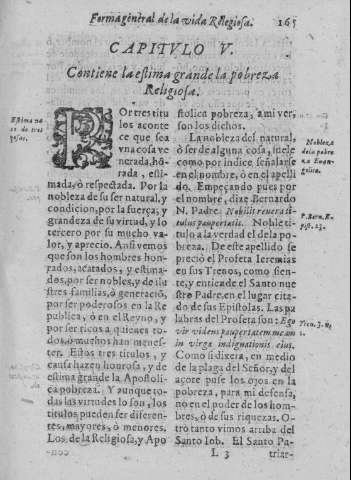 Forma general de la vida Religiosa. 165
CAPITVLO V.
Contiene la estima grande la pobreza
Religiosa.
POr tres titu
los aconte
ce que sea
vna cosa ve
nerada, hõ
rada, esti
mada, ò respectada. Por la
nobleza de su ser natural, y
condicion, por la fuerça, y
grandeza de su virtud, y lo
tercero por su mucho va-
lor, y aprecio. Ansi vemos
que son los hombres honr-
rados, acatados, y estima-
dos, por ser nobles, y de ilu
stres familias, ò generaciõ,
por ser poderosos en la Re
publica, ò en el Reyno, y
por ser ricos a quienes to-
dos, ò muchos han menes-
ter. Estos tres titulos, y
causa hazen honrosa, y de
estima grande la Apostoli
ca pobreza. Y aunque to-
das las virtudes lo son, los
titulos pueden ser diferen-
tes, mayores, ò menores.
Los de la Religiosa, y Apo
stolica pobreza, a mi ver,
son los dichos.
La nobleza del natural,
ò ser de alguna cosa, suele
como por indice señalarse
en el nombre, ò en el apelli
do. Empeçando pues por
el nombre, dize Bernardo
N. Padre. Nobilis revera ti-
tulus paupertatis. Noble ti-
tulo a la verdad el de la po-
breza. De este apellido se
preciò el Profeta Ieremias
en sus Trenos, como sien-
te, y entiẽde el Santo nue
stro Padre, en el lugar cita
do de sus Epistolas. Las pa
labras del Profeta son: Ego
vir videns paupertatem meam
in virga indignationis eius.
Como si dixera, en medio
de la plaga del Señor, y del
açore puse los ojos en la
pobreza, para mi defensa,
no en el poder de los hom-
bres, ò de sus riquezas. O-
tro tanto vimos arriba del
Santo Iob. El Santo Pa-
L 3 triar-
Nobleza
dela pobre
za Euan-
gelica.
P. Bern. E
pist. 23.